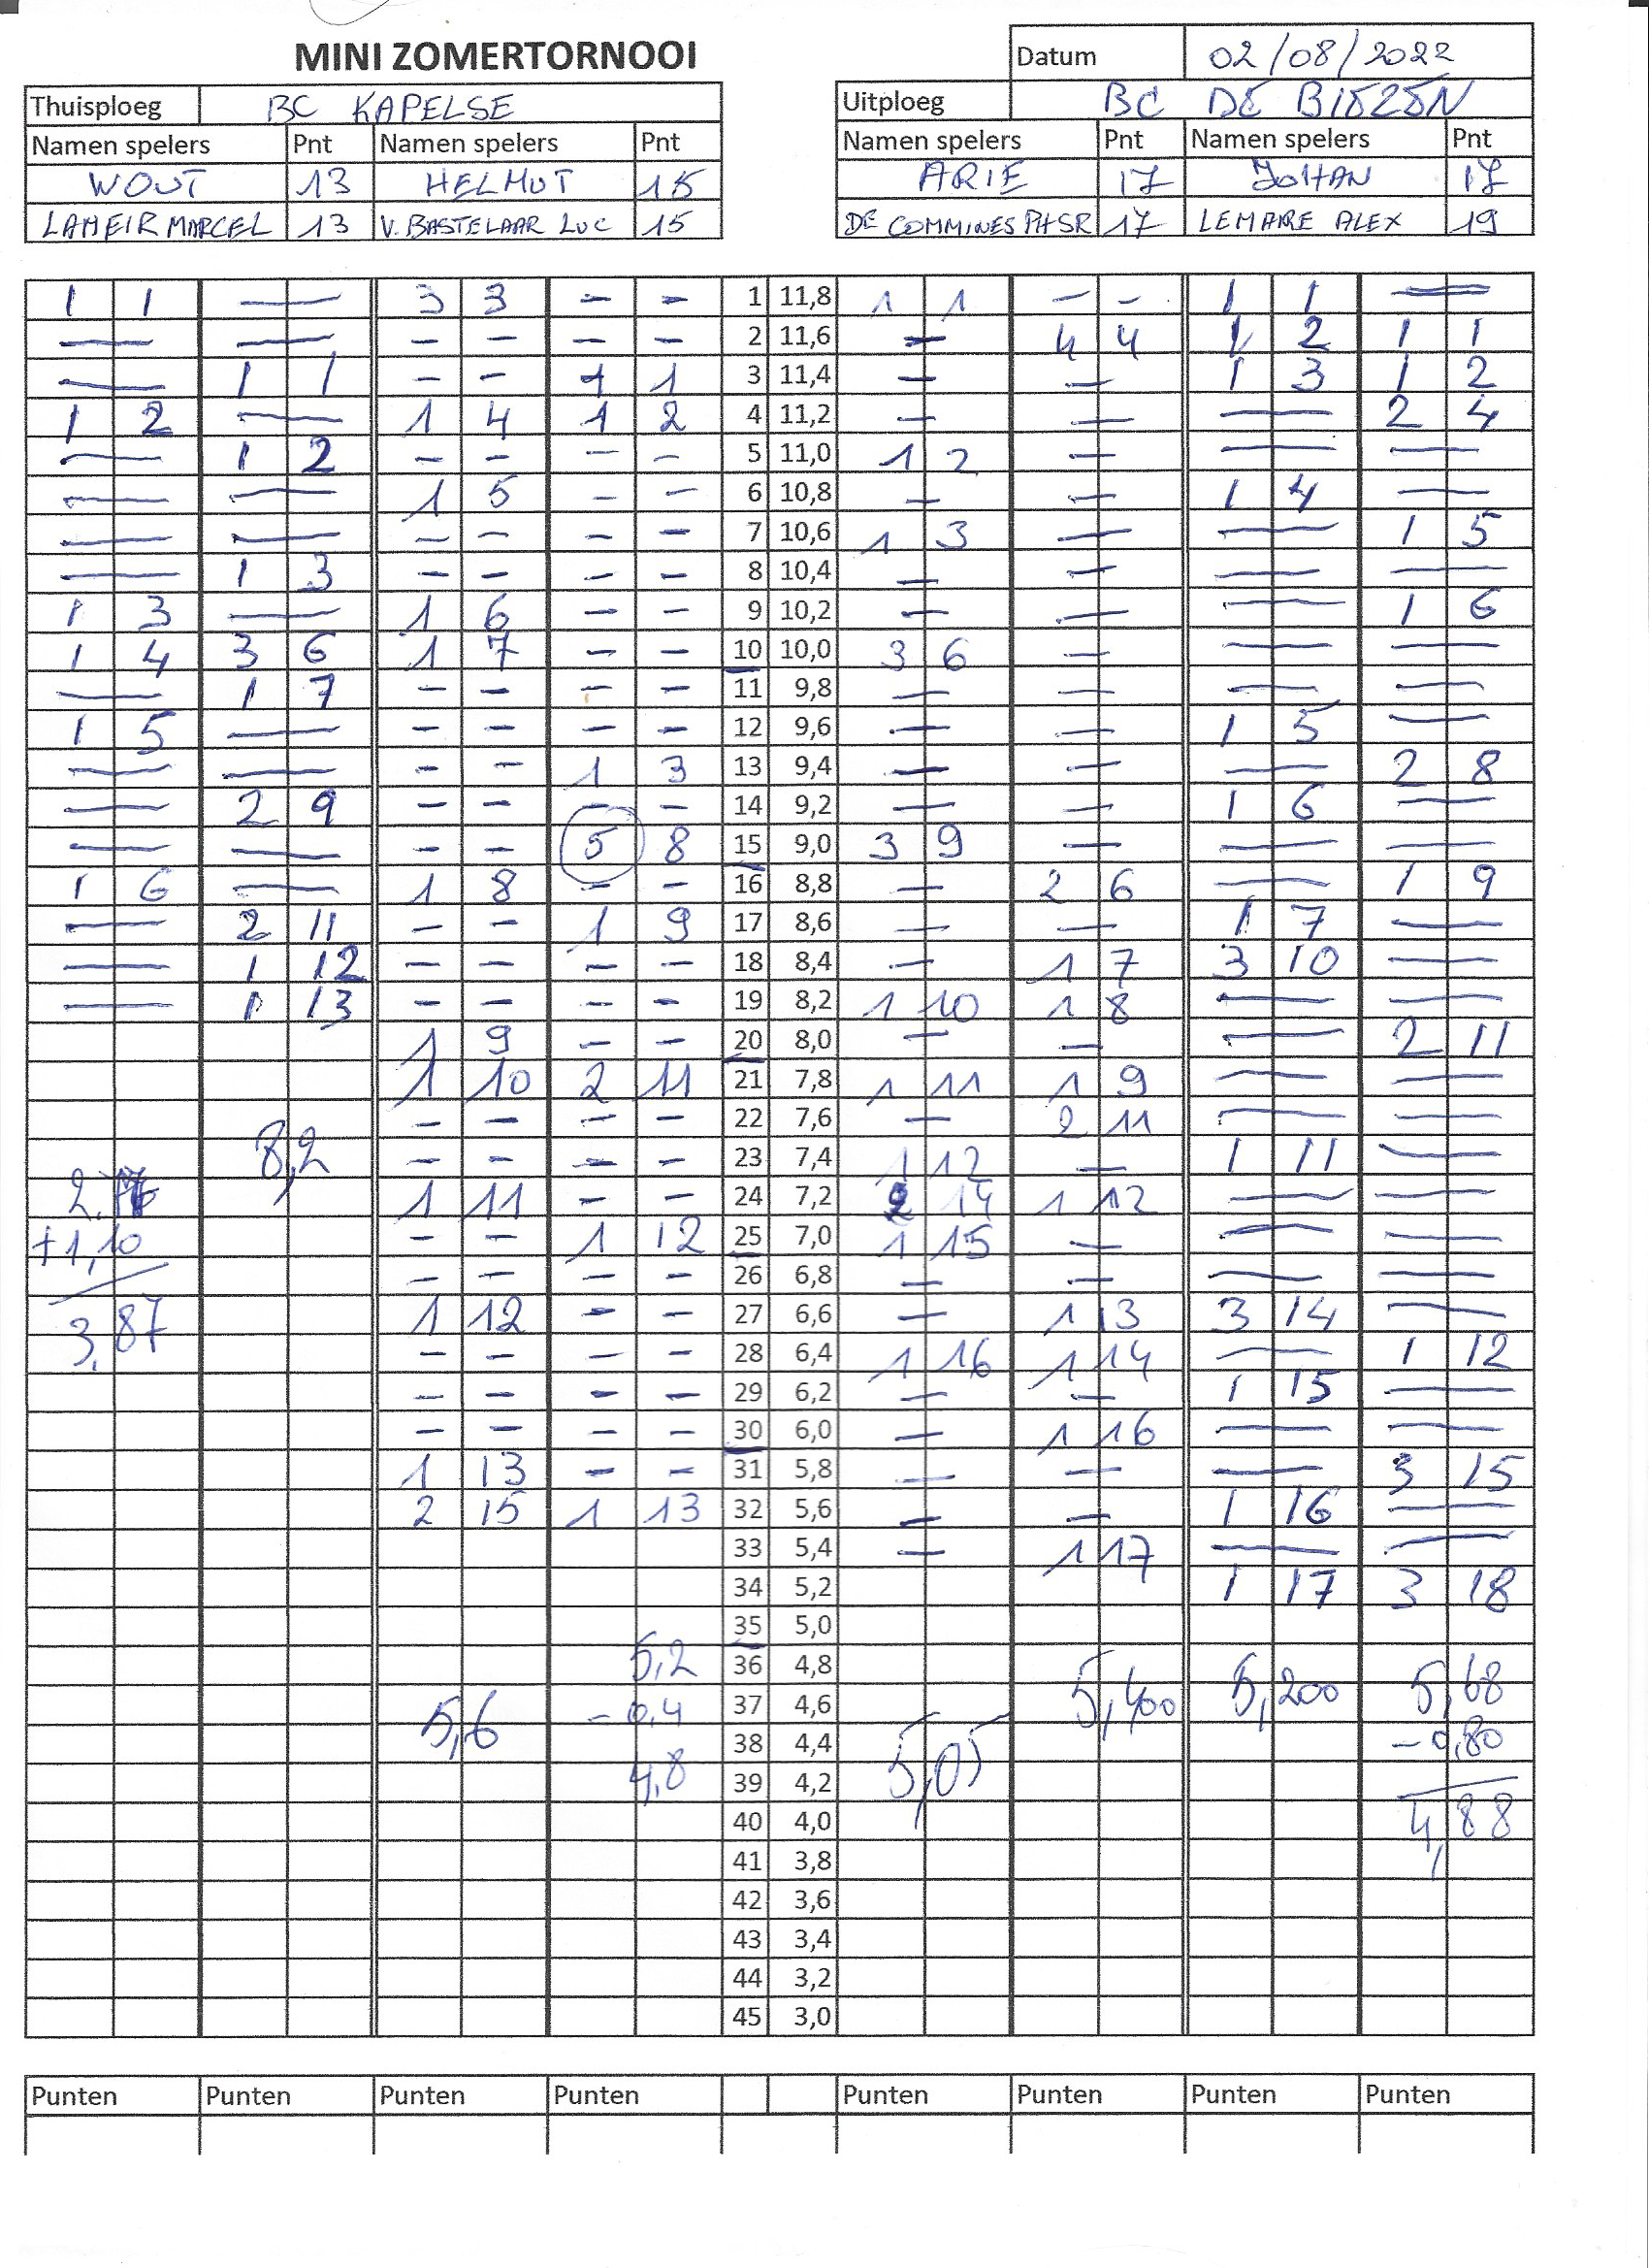 MINI ZOMERTORNOOI
Datum 02/08/2022
Thuisploeg BC KAPELSE
Uitploeg BC DE BIEZEN
Namen spelers Pnt Namen spelers Pnt
Namen spelers Pnt Namen spelers Pnt
WOUT 13 HELMUT 15
ARIE 17 JOHAN 17
LAMEIR MARCEL 13 V. BASTELAAR LUC 15
DE COMMINES 17 LEMAIRE ALEX 19
1 1 — 3 3 - - 1 11,8 1 1 - - 1 1 —
— — - - - - 2 11,6 — 4 4 1 2 1 1
— 1 1 - - 1 1 3 11,4 — — 1 3 1 2
1 2 — 1 4 1 2 4 11,2 — — — 2 4
— 1 2 - - - - 5 11,0 1 2 — — —
— — 1 5 - - 6 10,8 — — 1 4 —
— — - - - - 7 10,6 1 3 — — 1 5
— 1 3 - - - - 8 10,4 — — — —
1 3 — 1 6 - - 9 10,2 — — — 1 6
1 4 3 6 1 7 - - 10 10,0 3 6 — — —
— 1 7 - - - - 11 9,8 — — — —
1 5 — - - - - 12 9,6 — — 1 5 —
— — - - 1 3 13 9,4 — — — 2 8
— 2 9 - - - - 14 9,2 — — 1 6 —
— — - - 5 8 15 9,0 3 9 — — —
1 6 — 1 8 - - 16 8,8 — 2 6 — 1 9
— 2 11 - - 1 9 17 8,6 — — 1 7 —
— 1 12 - - - - 18 8,4 — 1 7 3 10 —
— 1 13 - - - - 19 8,2 1 10 1 8 — —
1 9 - - 20 8,0 — — — 2 11
1 10 2 11 21 7,8 1 11 1 9 — —
- - - - 22 7,6 — 2 11 — —
8,2 - - - - 23 7,4 1 12 — 1 11 —
1 11 - - 24 7,2 2 14 1 12 — —
+1,10 - - 1 12 25 7,0 1 15 — — —
- - - - 26 6,8 — — — —
3,87 1 12 - - 27 6,6 — 1 13 3 14 —
- - - - 28 6,4 1 16 1 14 — 1 12
- - - - 29 6,2 — — 1 15 —
- - - - 30 6,0 — 1 16 — —
1 13 - - 31 5,8 — — — 3 15
2 15 1 13 32 5,6 — — 1 16 —
33 5,4 — 1 17 — —
34 5,2 1 17 3 18
35 5,0
5,2 36 4,8
5,6 - 0,4 37 4,6 5,400 5,200 5,68
38 4,4 - 0,80
4,8 39 4,2 5,05
40 4,0 4,88
41 3,8
42 3,6
43 3,4
44 3,2
45 3,0
Punten Punten Punten Punten Punten Punten Punten Punten